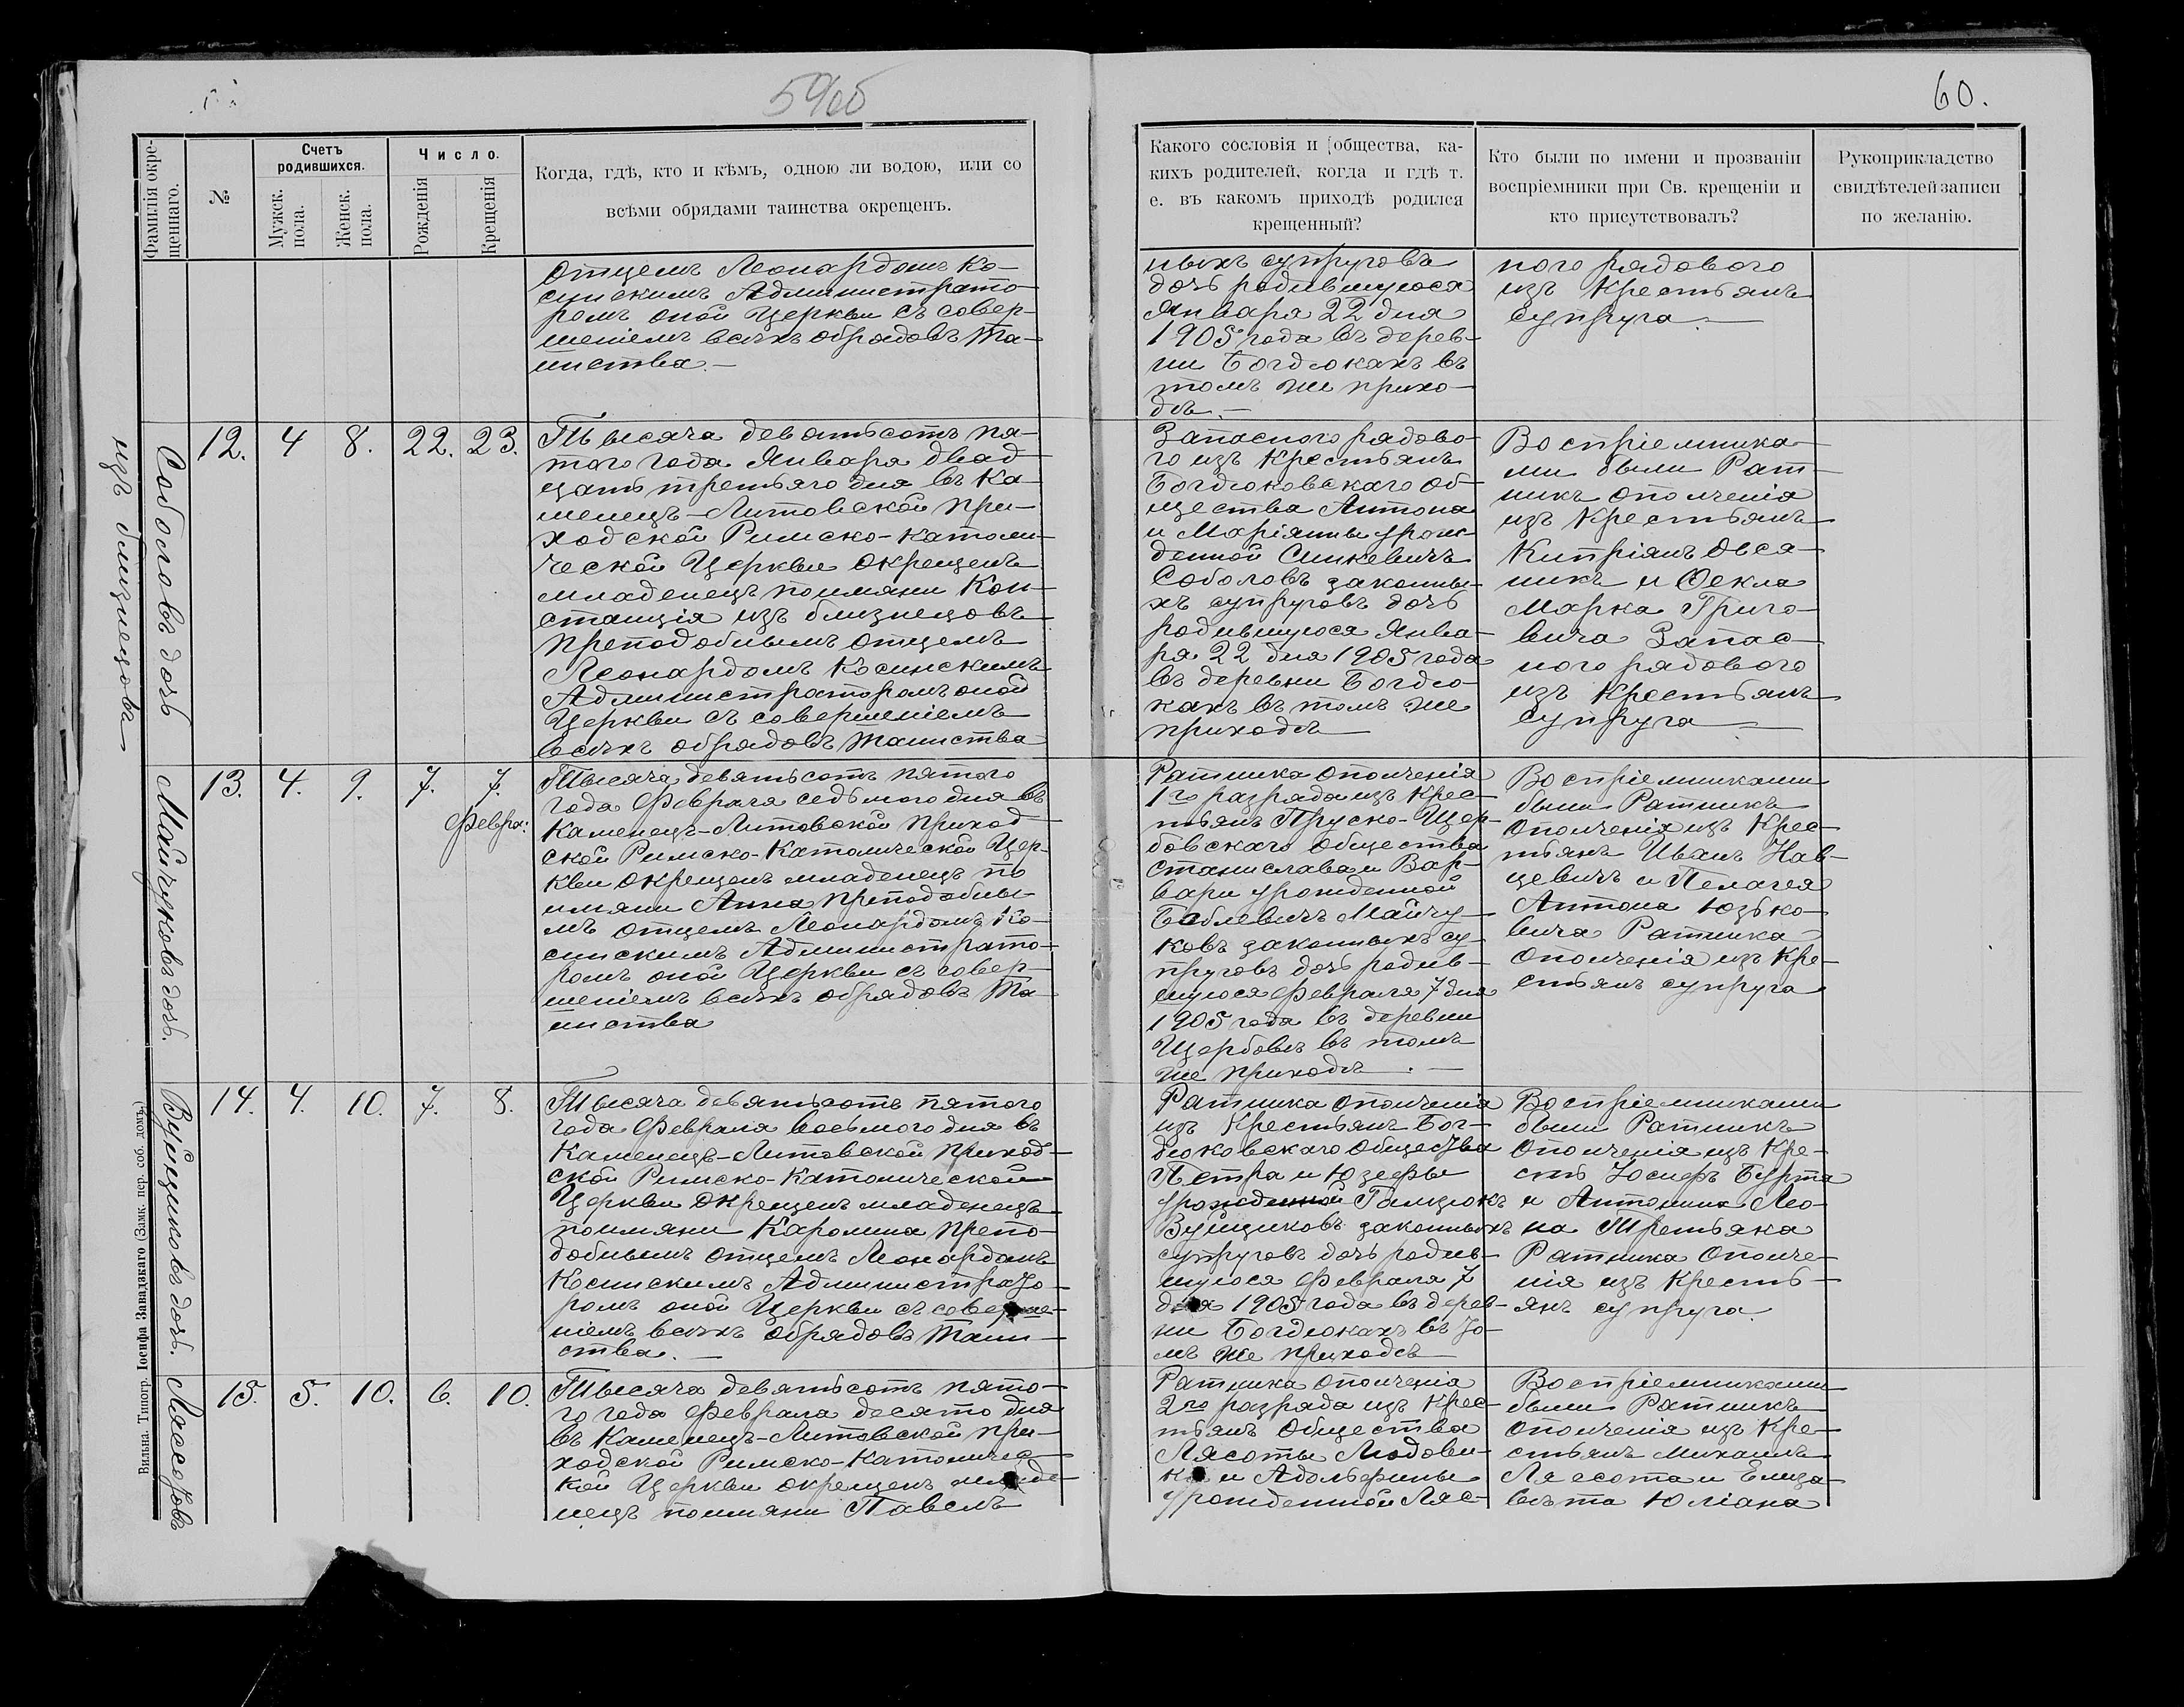 59об
60.
Фамилія окре-
щеннаго.
№
Счетъ
родившихся.
Мужск.
пола.
Женск.
пола.
Число.
Рожденія
Крещенія
Когда, гдѣ, кто и кѣмъ, одною ли водою, или со
всѣми обрядами таинства окрещенъ.
Какого сословія и общества, ка-
кихъ родителей, когда и гдѣ т.
е. въ какомъ приходѣ родился
крещенный?
Кто были по имени и прозванію
воспріемники при Св. крещеніи и
кто присутствовалъ?
Рукоприкладство
свидѣтелей записи
по желанію.
Отцемъ Леонардомъ Ко-
синскимъ Администрато-
ромъ оной Церкви съ совер-
шеніемъ всѣхъ обрядовъ Та-
инства.—
ныхъ супруговъ
дочь родившуюся
Января 22 дня
1905 года въ дерев-
ни Богдюкахъ въ
томъ же прихо-
дѣ.—
ного рядового
изъ Крестьянъ
супруга.—
Соболовъ дочь
изъ близнецовъ
12.
4
8.
22.
23.
Тысяча девятьсотъ пя-
того года Января двад-
цать третьяго дня въ Ка-
менецъ-Литовской При-
ходской Римско-Католи-
ческой Церкви окрещенъ
младенецъ поимяни Кон-
станція изъ близнецовъ
преподобнымъ отцемъ
Леонардомъ Косинскимъ
Администраторомъ оной
Церкви съ совершеніемъ
всѣхъ обрядовъ таинства
Запасного рядово-
го изъ Крестьянъ
Богдюковскаго об-
щества Антона
и Маріянны урож-
денной Синкевичъ
Соболовъ законны-
хъ супруговъ дочь
родившуюся Янва-
ря 22 дня 1905 года
въ деревни Богдю-
кахъ въ томъ же
приходѣ
Воспріемника-
ми были Рат-
никъ ополченія
изъ Крестьянъ
Кипріянъ Овся-
никъ и Ѳекла
Марка Григо-
вича Запас-
ного рядового
изъ Крестьянъ
супруга
Майчуковъ дочь.
13.
4.
9.
7.
7.
Февра:
Тысяча девятьсотъ пятого
года Февраля седьмого дня въ
Каменецъ-Литовской Приход-
ской Римско-Католической Цер-
кви окрещенъ младенецъ по
имяни Анна преподобны-
мъ отцемъ Леонардомъ Ко-
синскимъ Администрато-
ромъ оной Церкви съ совер-
шеніемъ всѣхъ обрядовъ Та-
инства
Ратника ополченія
1го разряда изъ Крес-
тьянъ Пруско-Щер-
бовскаго общества
Станислава и Вар-
вари урожденной
Боблевичъ Майчу-
ковъ законныхъ су-
пруговъ дочь родив-
шуюся Февраля 7 дня
1905 года въ деревни
Щербовѣ въ томъ
же приходѣ.—
Воспріемниками
были Ратникъ
ополченія изъ Крес-
тьянъ Иванъ Нав-
цевичъ и Пелагея
Антона Юзько-
вича Ратника
ополченія изъ Кре-
стьянъ супруга
Вуйциковъ дочь.
14.
4.
10.
7.
8.
Тысяча девятьсотъ пятого
года Февраля восьмого дня въ
Каменецъ-Литовской Приход-
ской Римско-Католической
Церкви окрещенъ младенецъ
поимяни Каролина препо-
добнымъ отцемъ Леонардомъ
Косинскимъ Администрато-
ромъ оной Церкви съ соверше-
ніемъ всѣхъ обрядовъ Таин-
ства.—
Ратника ополченія
изъ Крестьянъ Бог-
дюковскаго общества
Петра и Юзефы
урожденной Гамцюкъ
Вуйциковъ законныхъ
супруговъ дочь родив-
шуюся Февраля 7
дня 1905 года въ дерев-
ни Богдюкахъ въ то-
мъ же приходѣ
Воспріемниками
были Ратникъ
ополченія изъ Кре-
сть Іосифъ Бурта
и Антонина Лео-
на Третьяка
Ратника ополче-
нія изъ Кресть-
янъ супруга.
Лясотовъ
15.
5.
10.
6.
10.
Тысяча девятьсотъ пято-
го года Февраля десято дня
въ Каменецъ-Литовской При-
ходской Римско-Католичес-
кой Церкви окрещенъ младе-
нецъ поимяни Павелъ
Ратника ополченія
2го разряда изъ Крес-
тьянъ общества
Лясоты Людови-
ка и Адольфины
урожденной Ляс-
Воспріемниками
были Ратникъ
ополченія изъ Кре-
стьянъ Михаилъ
Лясота и Елиза-
вета Юліана
Вильна. Типогр. Іосифа Завадзкаго (Замк. пер. соб. домъ.)